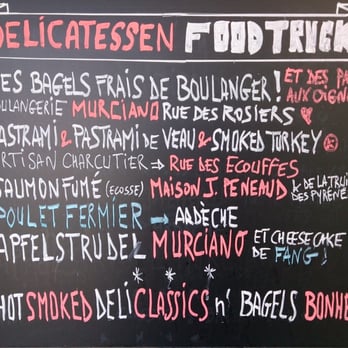 DELICATESSEN FOODTRUCK
ES BAGELS FRAIS DE BOULANGER! ET DES PA
AUX OIGN
OULANGERIE MURCIANO RUE DES ROSIERS
ASTRAMI & PASTRAMI DE VEAU & SMOKED TURKEY
ARTISAN CHARCUTIER → RUE DES ECOUFFES
SAUMON FUMÉ (ECOSSE) MAISON J. PENEAUD & DE LA TRUI
DES PYRÉNÉ
POULET FERMIER → ARDÈCHE
APFELSTRUDEL MURCIANO ET CHEESE CAKE
DE FANG!
***
HOT SMOKED DELI CLASSICS n' BAGELS BONHE